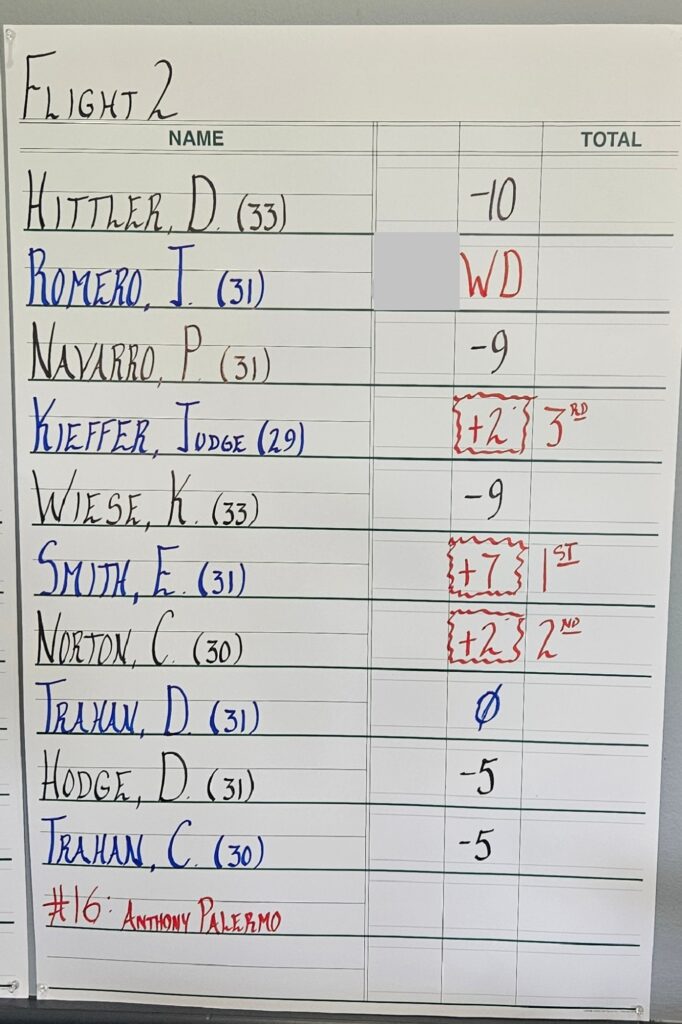 Flight 2
NAME TOTAL
Hittler, D. (33) -10
Romero, J. (31) WD
Navarro, P. (31) -9
Kieffer, Judge (29) +2 3RD
Wiese, K. (33) -9
Smith, E. (31) +7 1ST
Norton, C. (30) +2 2ND
Trahan, D. (31) Ø
Hodge, D. (31) -5
Trahan, C. (30) -5
#16: Anthony Palermo